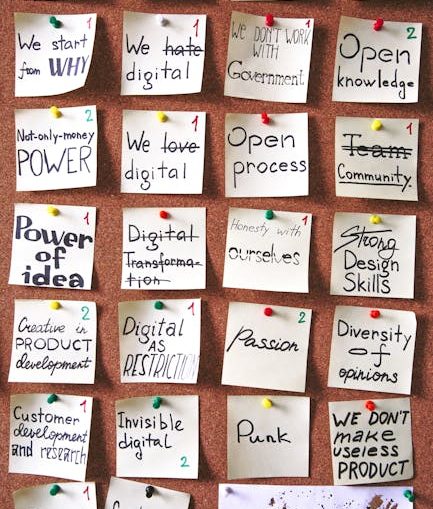 1
We start
from WHY
1
We hate
digital
1
WE DON'T WORK
WITH
Government
2
Open
knowledge
2
Not-only-money
POWER
1
We love
digital
1
Open
process
1
Team
Community.
1
Power
of
idea
Digital
Transforma-
tion
1
Honesty with
ourselves
Strong
Design
Skills
2
Creative in
PRODUCT
development
1
Digital
AS
RESTRICTION
2
Passion
Diversity
of
opinions
1
Customer
development
and research
Invisible
digital
2
Punk
WE DON'T
make
useless
PRODUCT
1